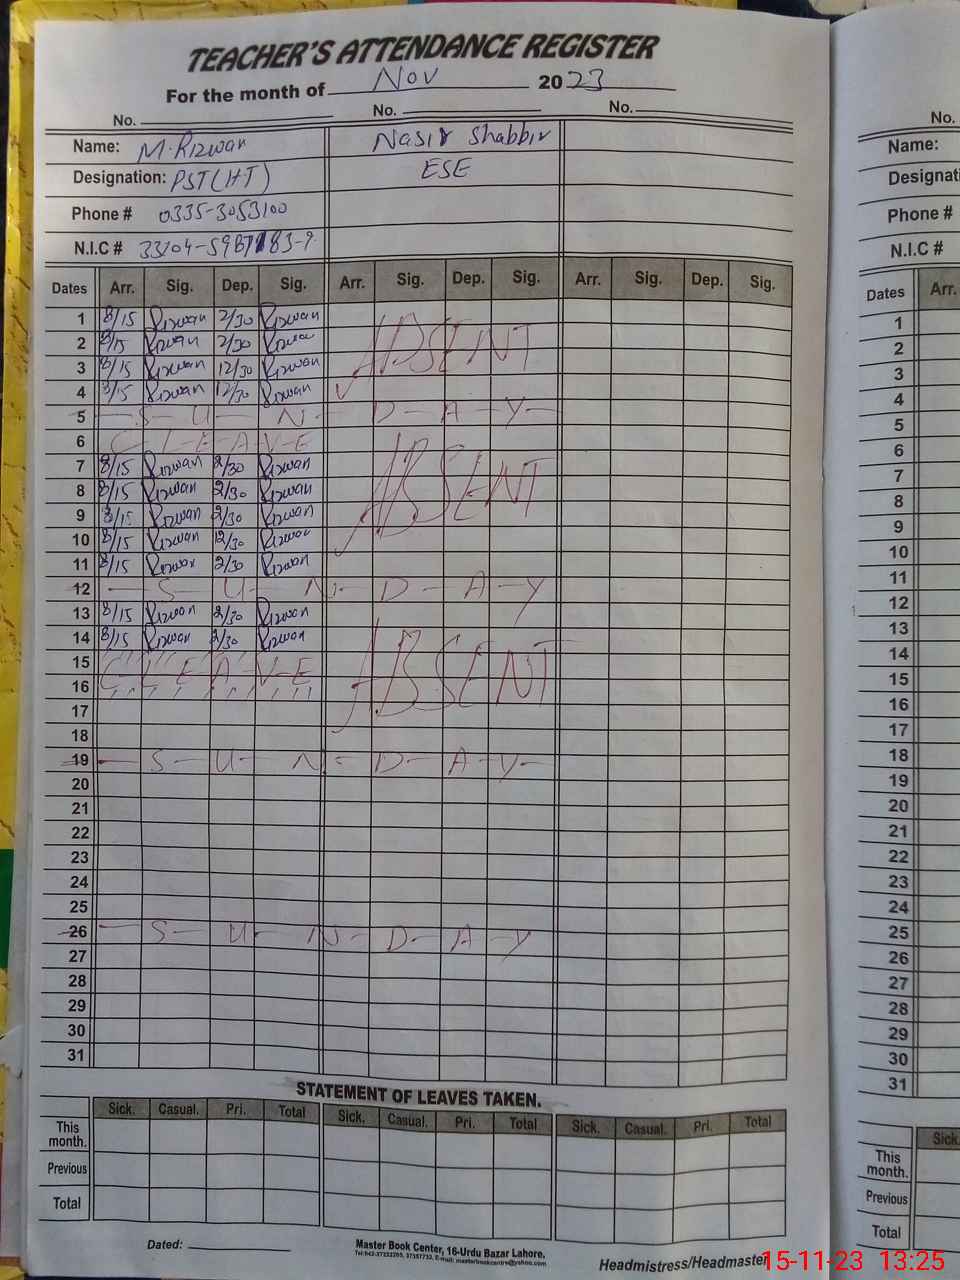 TEACHER'S ATTENDANCE REGISTER
For the month of Nov 2023
No. No. No.
Name: M. Rizwan Nasir Shabbir
Designation: PST(HT) ESE
Phone # 0335-3053100
N.I.C #
Dates Arr. Sig. Dep. Sig. Arr. Sig. Dep. Sig. Arr. Sig. Dep. Sig.
1 8/15 Rizwan 2/30 Rizwan ABSENT
2 8/15 Rizwan 2/30 Rizwan
3 8/15 Rizwan 12/30 Rizwan
4 8/15 Rizwan 12/30 Rizwan
5 S U N D A Y
6 C L E A V E ABSENT
7 8/15 Rizwan 2/30 Rizwan
8 8/15 Rizwan 2/30 Rizwan
9 8/15 Rizwan 2/30 Rizwan
10 8/15 Rizwan 12/30 Rizwan
11 8/15 Rizwan 2/30 Rizwan
12 S U N D A Y
13 8/15 Rizwan 2/30 Rizwan ABSENT
14 8/15 Rizwan 2/30 Rizwan
15 C L E A V E
16
17
18
19 S U N D A Y
20
21
22
23
24
25
26 S U N D A Y
27
28
29
30
31
STATEMENT OF LEAVES TAKEN.
Sick. Casual. Pri. Total Sick. Casual. Pri. Total Sick. Casual. Pri. Total
This month.
Previous
Total
Dated:
Master Book Center, 16-Urdu Bazar Lahore.
Headmistress/Headmaster
No.
Name:
Designati
Phone #
N.I.C #
Dates Arr.
1
2
3
4
5
6
7
8
9
10
11
12
13
14
15
16
17
18
19
20
21
22
23
24
25
26
27
28
29
30
31
Sick.
This month.
Previous
Total
15-11-23 13:25